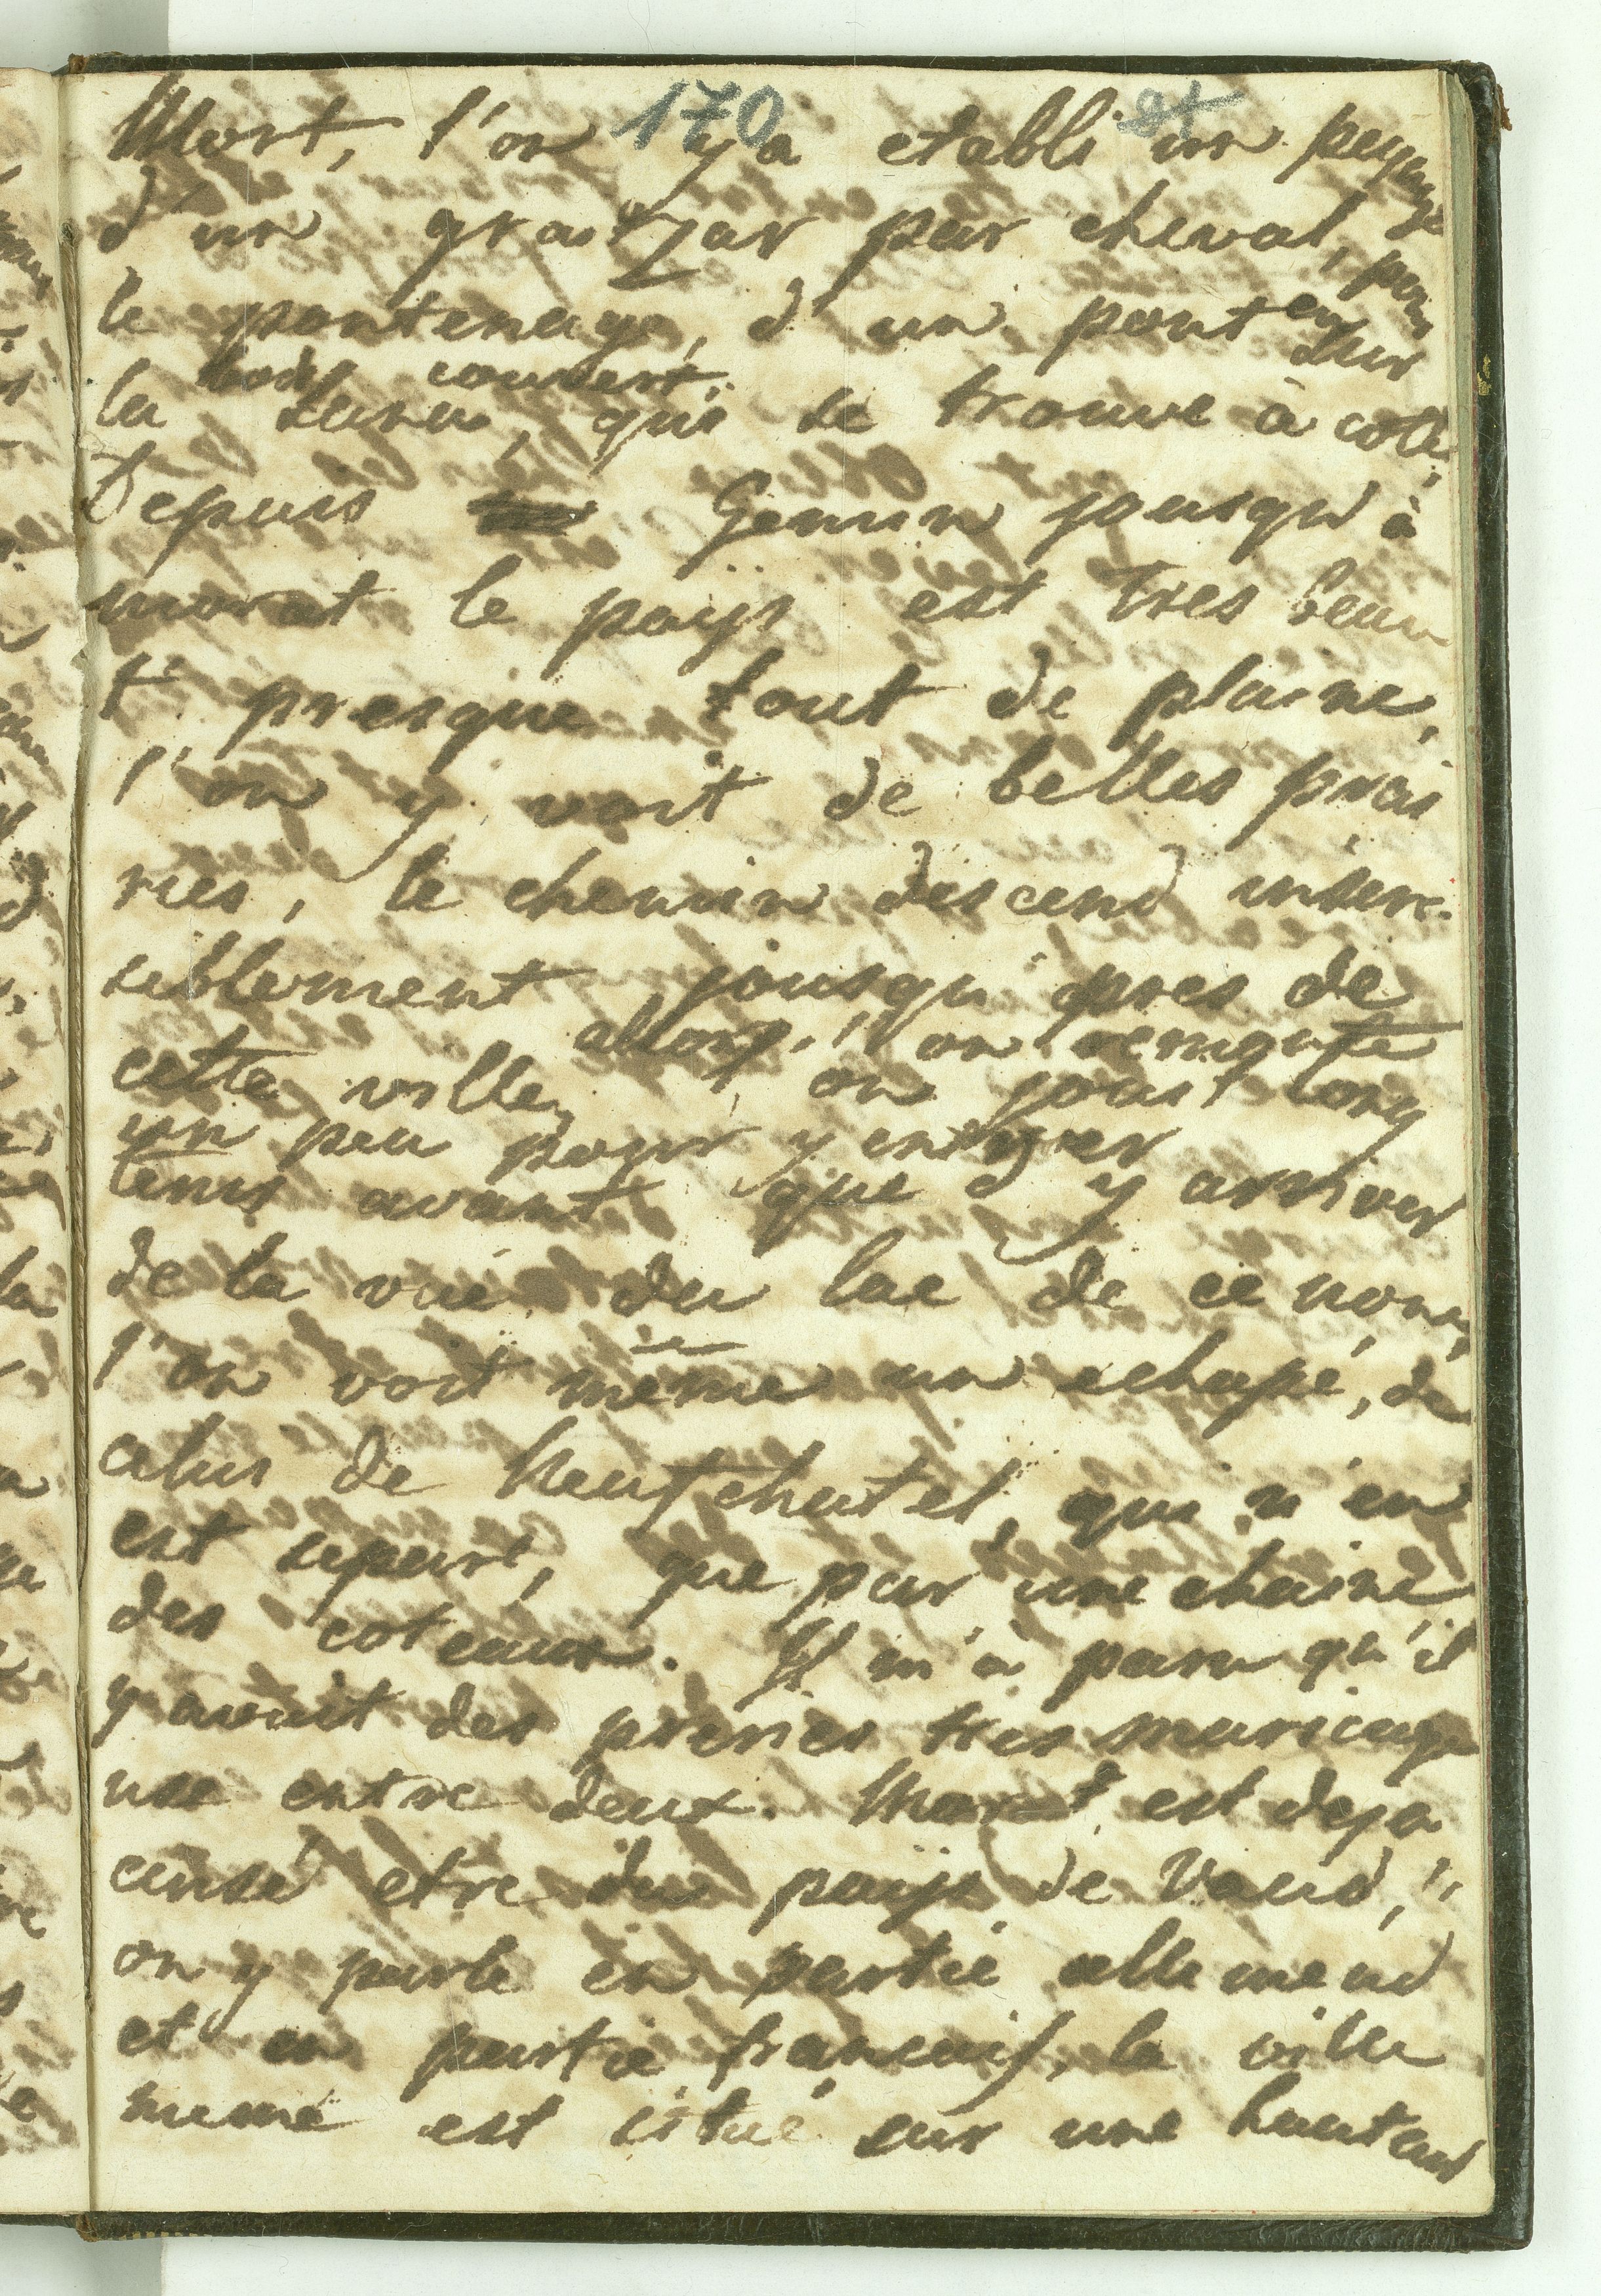 170
Mort, l'on y a etabli un peyage
d'un graitzar par cheval, pour
le pontenage, d'un pont en
bois couvert. sur
la Sana, qui se trouve à coté.
Depuis Gemin jousqu'à
morat le pays est tres beau
t' presque tout de plaine,
l'on y voit de belles prai
ries, le chemin descend insen-
seblement jousqu' pres de
allors, l'on remonte
cette ville, on jouit long
un peu pour y entrer
tems avant que d'y arriver
de la vuë du lac de ce nom,
l'on voit même un echapé, de
celui de Neufchatel, qui n'en
est separé, que par une chaine
des coteaux. Il m'à paru qu'il
y avait des preries tres maricage
use entre deux. Morat est deja
censé etre du pays de Vaud, l'
on y parle en partie allemend
et en partie francais, la ville
meme est situé sur une hauteur